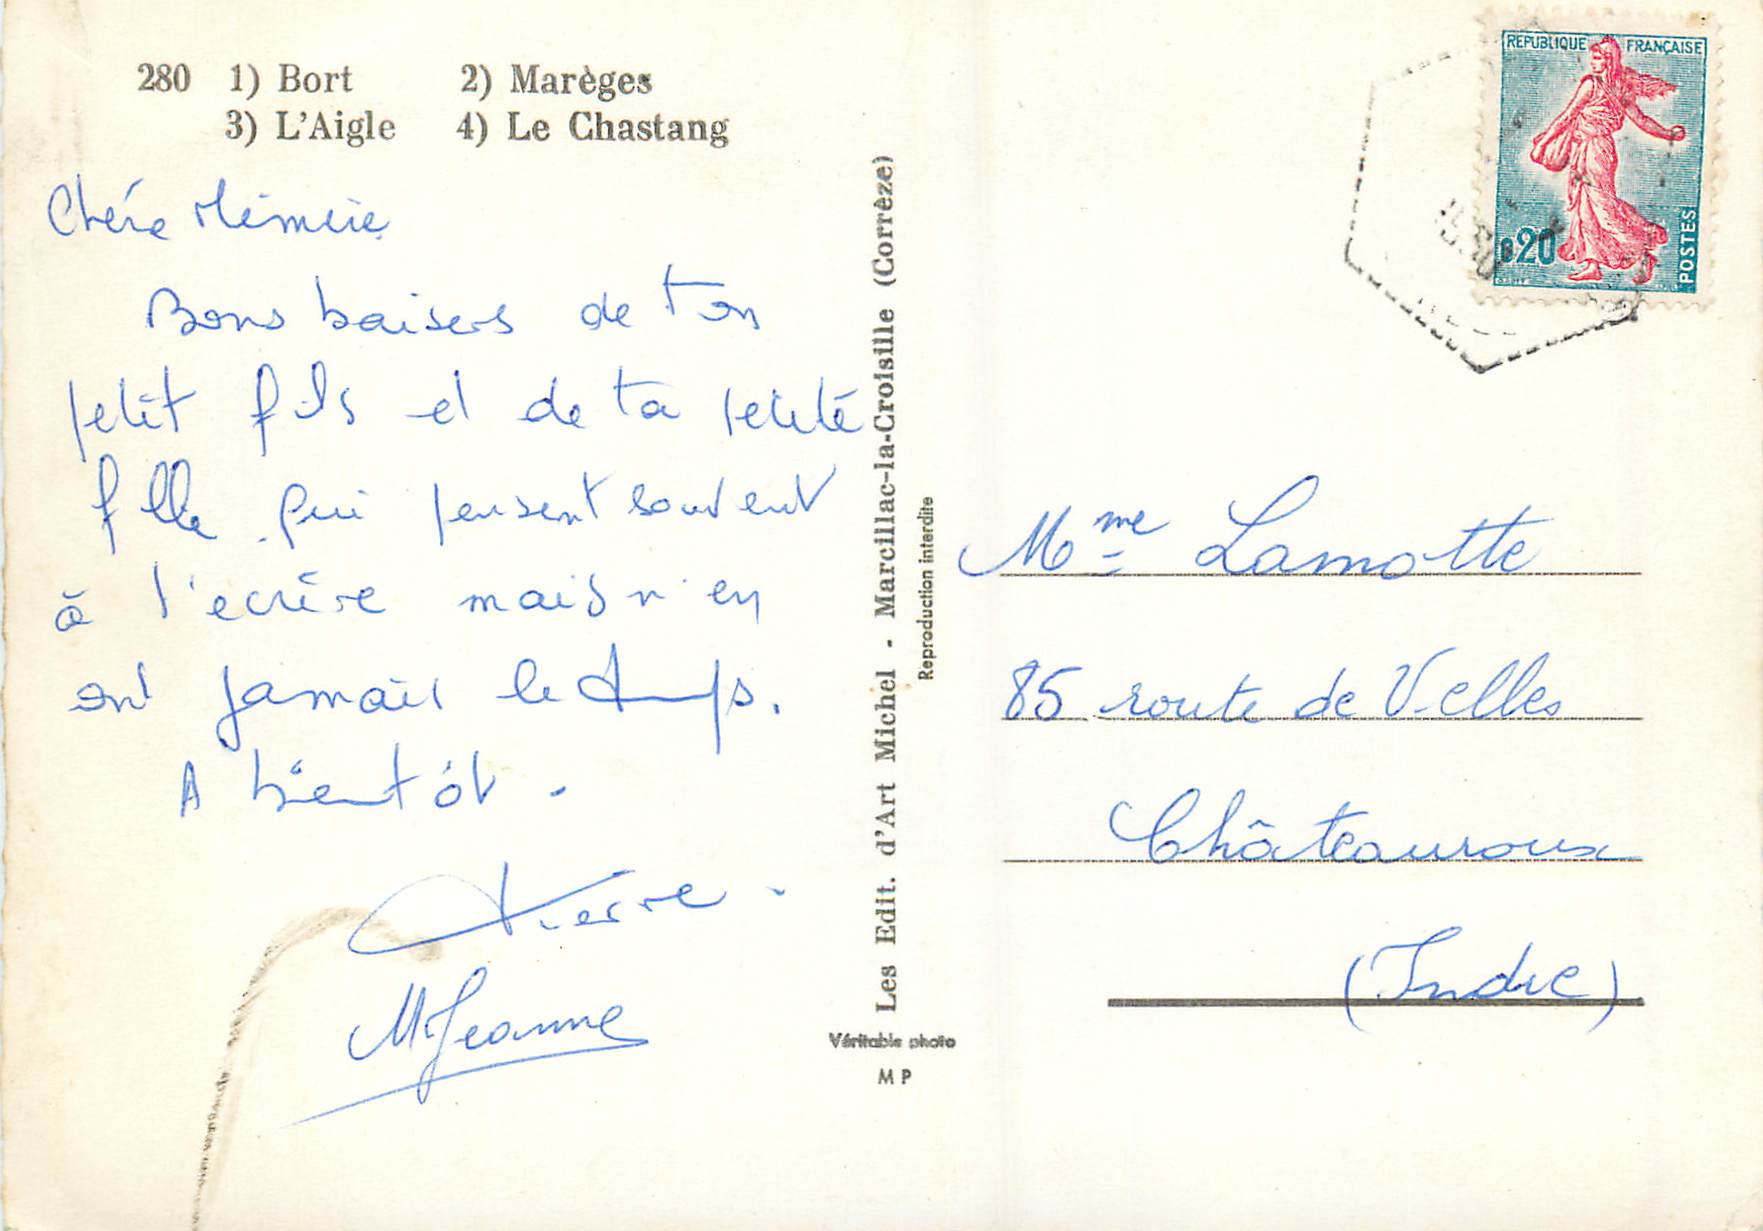 280 1) Bort 2) Marèges
3) L'Aigle 4) Le Chastang
Chère Mémère
Bons baisers de ton
petit fils et de ta petite
fille qui pensent souvent
à t'écrire mais n'en
ont jamais le temps.
A bientôt.
Pierre
M Jeanne
Les Edit. d'Art Michel - Marcillac-la-Croisille (Corrèze)
Reproduction interdite
Véritable photo
M P
REPUBLIQUE FRANÇAISE
0,20
POSTES
Mme Lamotte
85 route de Velles
Châteauroux
(Indre)